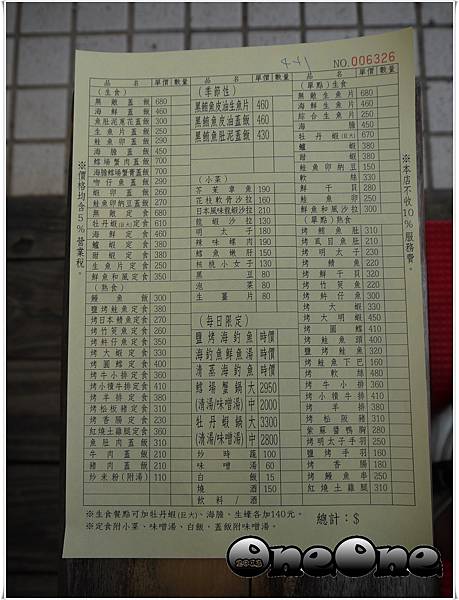 4+1
NO.006326
品名 單價 數量
(生食)
無敵蓋飯 680
海鮮蓋飯 460
魚肚泥蔥花蓋飯 300
生魚片蓋飯 300
鮭魚卵蓋飯 290
海膽蓋飯 350
鱈場蟹肉蓋飯 700
海膽鱈場蟹膏蓋飯 700
吻仔魚蓋飯 290
蝦卵蓋飯 200
鮭魚卵納豆蓋飯 350
無敵定食 730
牡丹蝦(巨大)定食 610
海鮮定食 460
鱸蝦定食 730
甜蝦定食 380
生魚片定食 350
鮮魚和風定食 350
(熟食)
鰻魚飯 300
鹽烤鮭魚定食 380
烤日本鯖魚定食 270
烤竹筴魚定食 340
烤魽仔魚定食 350
烤大蝦定食 330
烤圓鱈定食 460
烤牛小排定食 360
烤小積牛排定食 410
烤羊排定食 380
烤松板豬定食 310
烤香腸定食 230
紅燒土雞腿定食 360
魚肚肉蓋飯 310
牛肉蓋飯 210
豬肉蓋飯 210
炒米粉(附湯) 110
品名 單價 數量
(季節性)
黑鮪魚皮油生魚片 460
黑鮪魚皮油蓋飯 460
黑鮪魚肚泥蓋飯 430
(小菜)
芥茉章魚 190
花枝軟骨沙拉 160
日本風味龍蝦沙拉 210
龍蝦沙拉 130
明太子 180
辣味螺肉 190
鱈魚嫩肝 150
核桃小女子 130
黑豆 80
泡菜 80
生薑片 80
(每日限定)
鹽烤海釣魚 時價
海釣魚鮮魚湯 時價
清蒸海釣魚 時價
鱈場蟹鍋 大 2950
(清湯/味噌湯) 中 2000
牡丹蝦鍋 大 3300
(清湯/味噌湯) 中 2800
炒時蔬 100
味噌湯 60
白飯 15
燒酒 150
飲料/酒
品名 單價 數量
(單點)生食
無敵生魚片 680
海鮮生魚片 410
綜合生魚片 250
海膽 450
牡丹蝦(巨大) 670
鱸蝦 380
甜蝦 380
鮭魚卵納豆 150
軟絲 330
鮮干貝 380
鮭魚卵 250
鮮魚和風沙拉 300
(單點)熟食
烤鱈魚肚 310
烤虱目魚肚 210
烤明太子 230
烤鯖魚 220
烤鮮干貝 320
烤竹筴魚 290
烤魽仔魚 310
烤大蝦 280
烤大明蝦 450
烤圓鱈 410
烤鮭魚頭 400
鹽烤鮭魚 320
烤鮭魚下巴 160
烤軟絲 480
烤牛小排 360
烤小積牛排 410
烤羊排 380
烤松阪豬 310
紫蘇醬鴨胸 280
烤明太子手羽 250
鹽烤手羽 160
烤香腸 180
烤鰻魚串 250
紅燒土雞腿 310
※價格均含5%營業稅。
※本店不收10%服務費。
※生食餐點可加牡丹蝦(巨大)、海膽、生蠔各加140元。
※定食附小菜、味噌湯、白飯,蓋飯附味噌湯。
總計:$
OneOne
2012